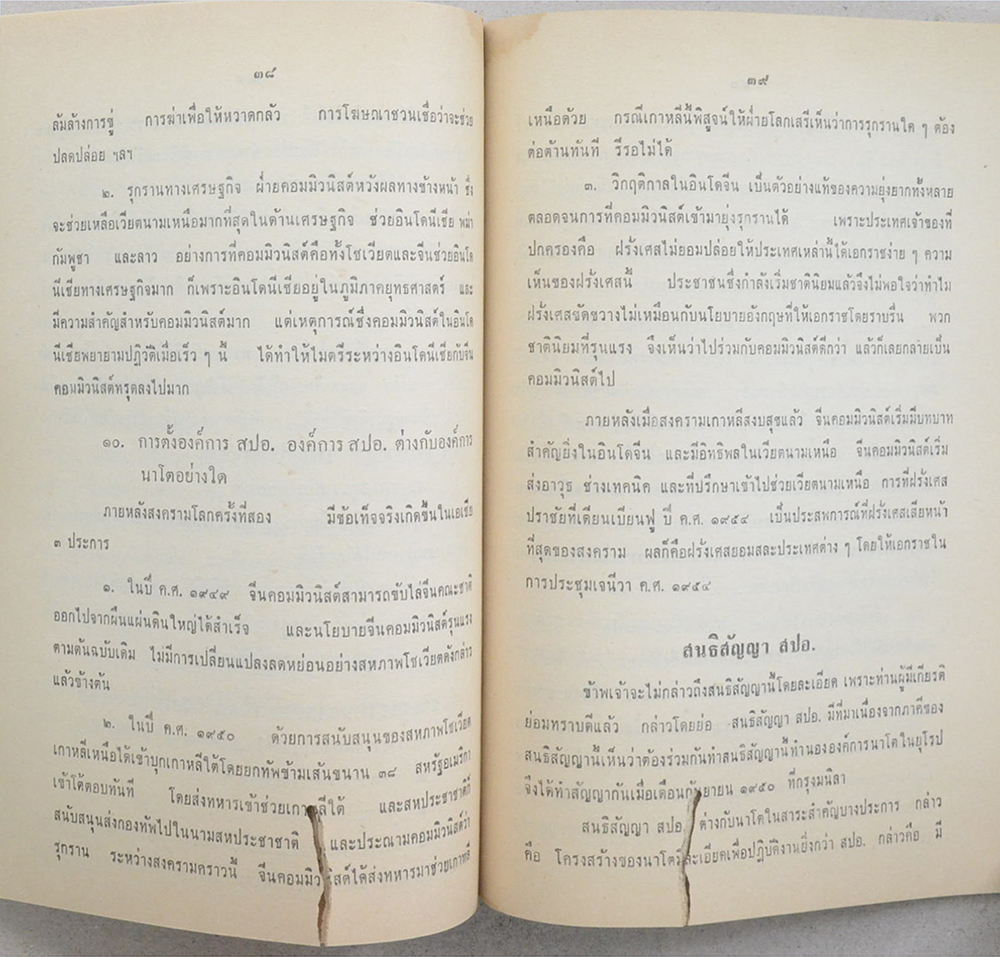 ๓๘
ล้มล้างการขู่ การฆ่าเพื่อให้หวาดกลัว การโฆษณาชวนเชื่อว่าจะช่วย
ปลดปล่อย ฯลฯ
๒. รุกรานทางเศรษฐกิจ ฝ่ายคอมมิวนิสต์หวังผลทางข้างหน้า ซึ่ง
จะช่วยเหลือเวียตนามเหนือมากที่สุดในด้านเศรษฐกิจ ช่วยอินโดนีเซีย พม่า
กัมพูชา และลาว อย่างการที่คอมมิวนิสต์คือทั้งโซเวียตและจีนช่วยอินโด
นีเซียทางเศรษฐกิจมาก ก็เพราะอินโดนีเซียอยู่ในภูมิภาคยุทธศาสตร์ และ
มีความสำคัญสำหรับคอมมิวนิสต์มาก แต่เหตุการณ์ซึ่งคอมมิวนิสต์ในอินโด
นีเซียพยายามปฏิวัติเมื่อเร็ว ๆ นี้ ได้ทำให้ไมตรีระหว่างอินโดนีเซียกับจีน
คอมมิวนิสต์ทรุดลงไปมาก
๑๐. การตั้งองค์การ สปอ. องค์การ สปอ. ต่างกับองค์การ
นาโตอย่างใด
ภายหลังสงครามโลกครั้งที่สอง มีข้อเท็จจริงเกิดขึ้นในเอเซีย
๓ ประการ
๑. ในปี ค.ศ. ๑๙๔๙ จีนคอมมิวนิสต์สามารถขับไล่จีนคณะชาติ
ออกไปจากผืนแผ่นดินใหญ่ได้สำเร็จ และนโยบายจีนคอมมิวนิสต์รุนแรง
ตามต้นฉบับเดิม ไม่มีการเปลี่ยนแปลงลดหย่อนอย่างสหภาพโซเวียตดังกล่าว
แล้วข้างต้น
๒. ในปี ค.ศ. ๑๙๕๐ ด้วยการสนับสนุนของสหภาพโซเวียต
เกาหลีเหนือได้เข้าบุกเกาหลีใต้โดยยกทัพข้ามเส้นขนาน ๓๘ สหรัฐอเมริกา
เข้าโต้ตอบทันที โดยส่งทหารเข้าช่วยเกาหลีใต้ และสหประชาชาติก็
สนับสนุนส่งกองทัพไปในนามสหประชาชาติ และประณามคอมมิวนิสต์ว่า
รุกราน ระหว่างสงครามคราวนี้ จีนคอมมิวนิสต์ได้ส่งทหารมาช่วยเกาหลี
๓๙
เหนือด้วย กรณีเกาหลีนี้พิสูจน์ให้ฝ่ายโลกเสรีเห็นว่าการรุกรานใด ๆ ต้อง
ต่อต้านทันที รีรอไม่ได้
๓. วิกฤติกาลในอินโดจีน เป็นตัวอย่างแท้ของความยุ่งยากทั้งหลาย
ตลอดจนการที่คอมมิวนิสต์เข้ามายุ่งรุกรานได้ เพราะประเทศเจ้าของที่
ปกครองคือ ฝรั่งเศสไม่ยอมปล่อยให้ประเทศเหล่านี้ได้เอกราชง่าย ๆ ความ
เห็นของฝรั่งเศสนี้ ประชาชนซึ่งกำลังเริ่มชาตินิยมแล้วจึงไม่พอใจว่าทำไม
ฝรั่งเศสขัดขวางไม่เหมือนกับนโยบายอังกฤษที่ให้เอกราชโดยราบรื่น พวก
ชาตินิยมที่รุนแรง จึงเห็นว่าไปร่วมกับคอมมิวนิสต์ดีกว่า แล้วก็เลยกลายเป็น
คอมมิวนิสต์ไป
ภายหลังเมื่อสงครามเกาหลีสงบสุขแล้ว จีนคอมมิวนิสต์เริ่มมีบทบาท
สำคัญยิ่งในอินโดจีน และมีอิทธิพลในเวียตนามเหนือ จีนคอมมิวนิสต์เริ่ม
ส่งอาวุธ ช่างเทคนิค และที่ปรึกษาเข้าไปช่วยเวียตนามเหนือ การที่ฝรั่งเศส
ปราชัยที่เดียนเบียนฟู ปี ค.ศ. ๑๙๕๔ เป็นประสพการณ์ที่ฝรั่งเศสเสียหน้า
ที่สุดของสงคราม ผลก็คือฝรั่งเศสยอมสละประเทศต่าง ๆ โดยให้เอกราชใน
การประชุมเจนีวา ค.ศ. ๑๙๕๔
สนธิสัญญา สปอ.
ข้าพเจ้าจะไม่กล่าวถึงสนธิสัญญานี้โดยละเอียด เพราะท่านผู้มีเกียรติ
ย่อมทราบดีแล้ว กล่าวโดยย่อ สนธิสัญญา สปอ. มีที่มาเนื่องจากภาคีของ
สนธิสัญญานี้เห็นว่าต้องร่วมกันทำสนธิสัญญานี้ทำนององค์การนาโตในยุโรป
จึงได้ทำสัญญากันเมื่อเดือนกันยายน ๑๙๕๐ ที่กรุงมนิลา
สนธิสัญญา สปอ. ต่างกับนาโตในสาระสำคัญบางประการ กล่าว
คือ โครงสร้างของนาโตมีละเอียดเพื่อปฏิบัติงานยิ่งกว่า สปอ. กล่าวคือ มี